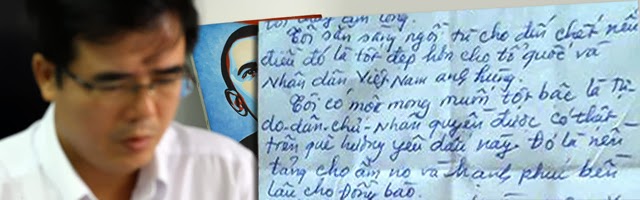 Tôi sẵn sàng ngồi tù cho đến chết nếu
điều đó là tốt đẹp hơn cho tổ quốc và
Nhân dân Việt Nam anh hùng.
Tôi có một mong muốn tột bậc là Tự
do-dân-chủ-Nhân quyền được có thật
trên quê hương yêu dấu này. Đó là nền
tảng cho ấm no và hạnh phúc bền
lâu cho Đồng bào.